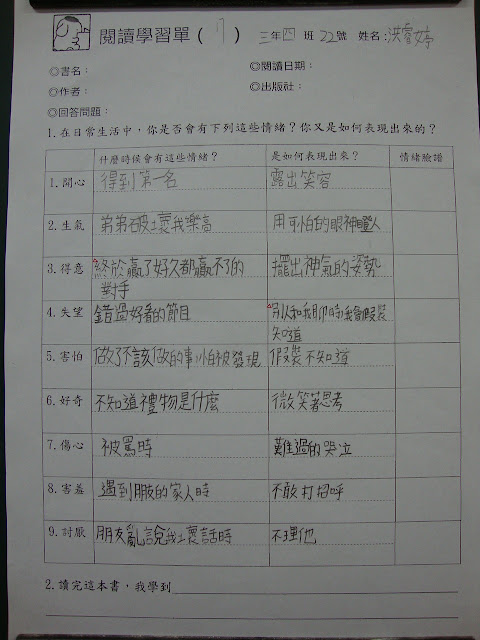 閱讀學習單( 月 ) 三年四班22號 姓名:洪睿婷
◎書名: ◎閱讀日期:
◎作者: ◎出版社:
◎回答問題:
1.在日常生活中,你是否會有下列這些情緒?你又是如何表現出來的?
什麼時候會有這些情緒? 是如何表現出來? 情緒臉譜
1.開心 得到第一名 露出笑容
2.生氣 弟弟破壞我樂高 用可怕的眼神瞪人
3.得意 終於贏了好久都贏不了的 擺出神氣的姿勢
對手
4.失望 錯過好看的節目 別人和我聊時我會假裝
知道
5.害怕 做了不該做的事怕被發現 假裝不知道
6.好奇 不知道禮物是什麼 微笑著思考
7.傷心 被罵時 難過的哭泣
8.害羞 遇到朋友的家人時 不敢打招呼
9.討厭 朋友亂說我壞話時 不理他
2.讀完這本書,我學到